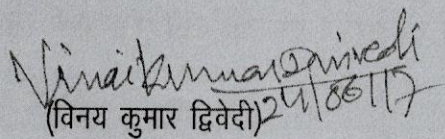 Vinaikumar Dwivedi
(विनय कुमार द्विवेदी) 24/06/17